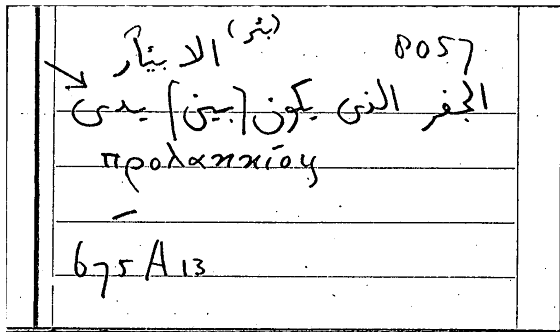 (بئر) الابيآر 8057
الجفر الذى يكون [بين] يدى
προλακκίου
–
675 A 13